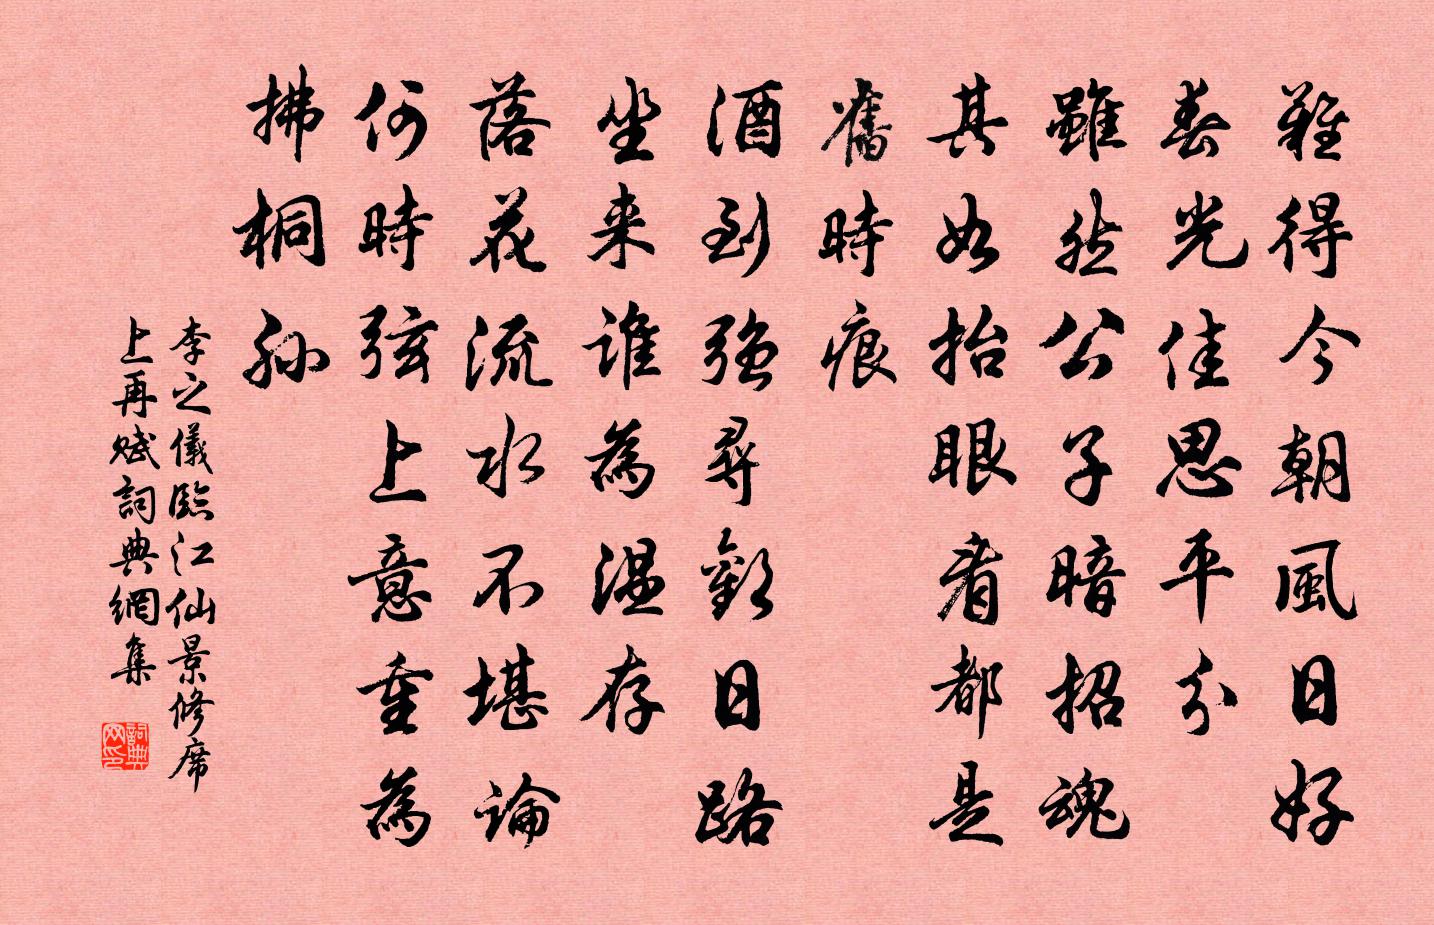 難得今朝風日好
春光佳思平分
雖然公子暗招魂
其如抬眼看都是
舊時痕
酒到強尋歡日路
坐来誰為温存
落花流水不堪論
何時弦上意重為
拂桐孙
李之儀臨江仙景修席
上再赋詞典網集
詞典
网印